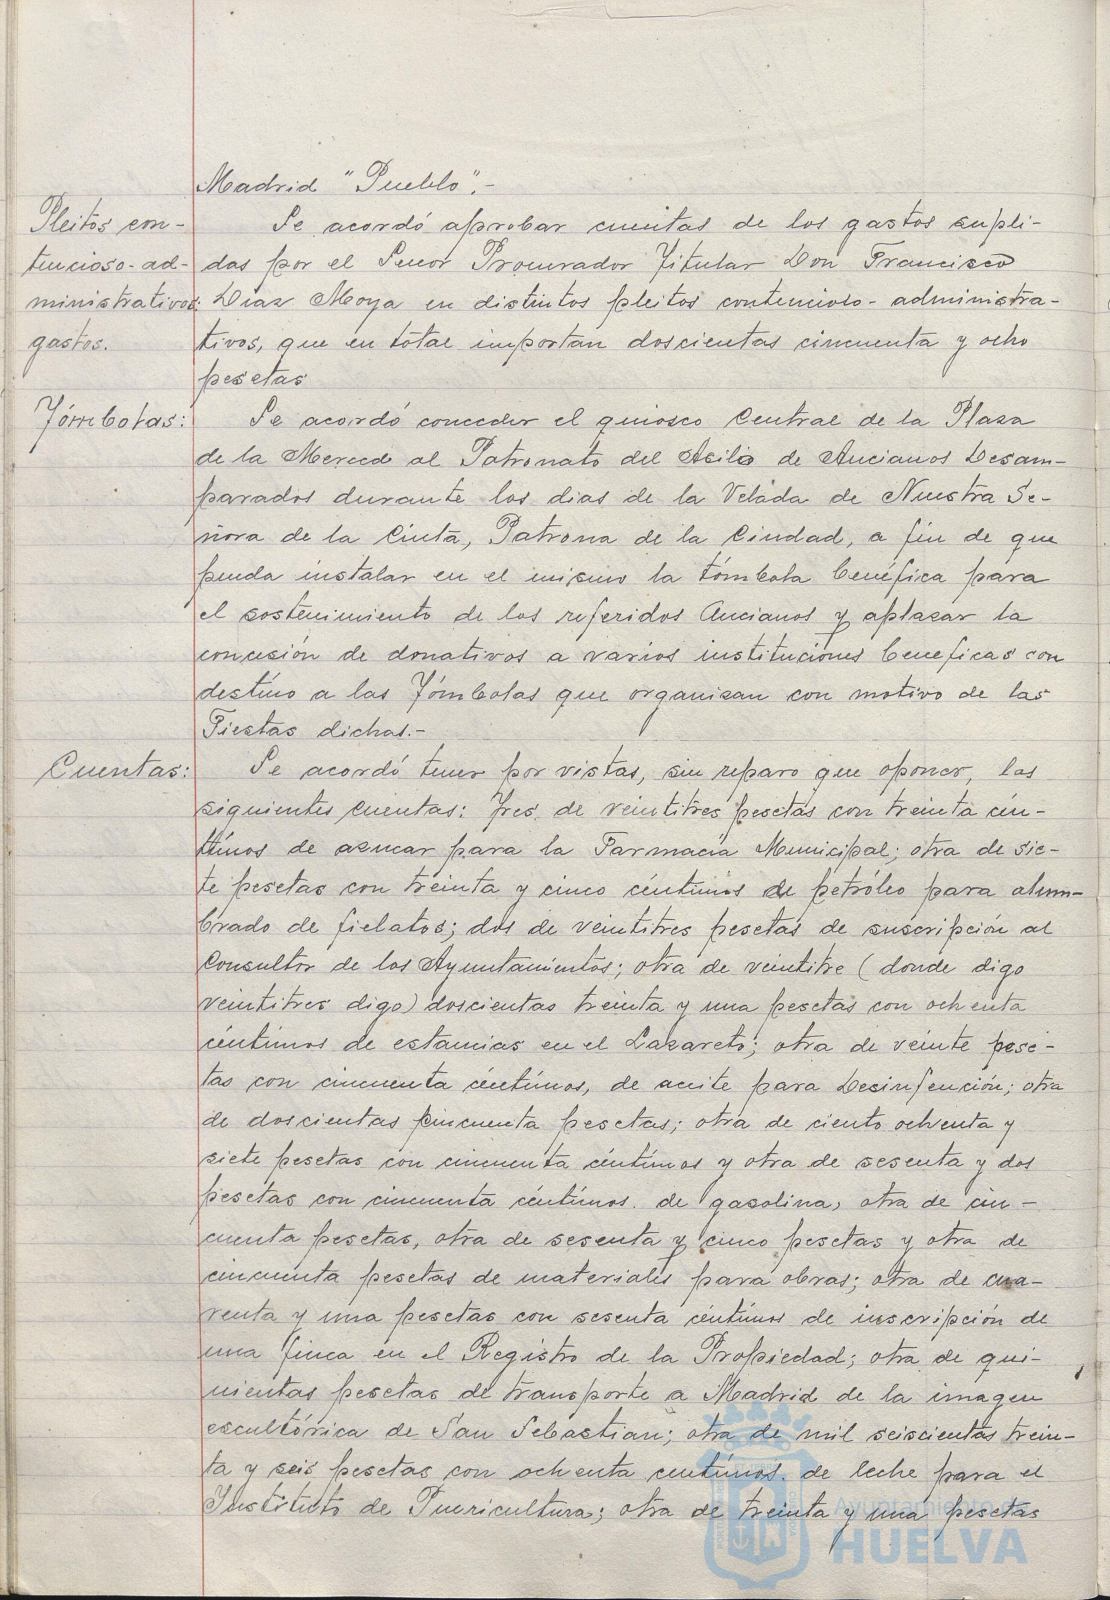 Madrid "Pueblo".-
Pleitos con-
tencioso-ad-
ministrativos:
gastos.
Se acordó aprobar cuentas de los gastos supli-
das por el Senor Procurador Titular Don Francisco
Díaz Moya en distintos pleitos contencioso-administra-
tivos, que en total importan doscientas cincuenta y ocho
pesetas
Tómbolas:
Se acordó conceder el quiosco Central de la Plaza
de la Merced al Patronato del Asilo de Ancianos Desam-
parados durante los dias de la Velada de Nuestra Se-
ñora de la Cinta, Patrona de la Ciudad, a fin de que
pueda instalar en el mismo la tómbola benéfica para
el sostenimiento de los referidos Ancianos y aplazar la
concesión de donativos a varios instituciones beneficas con
destino a las Tómbolas que organizan con motivo de las
Fiestas dichas.-
Cuentas:
Se acordó tener por vistas, sin reparo que oponer, las
siguientes cuentas: Tres de veintitres pesetas con treinta cén-
timos de azucar para la Farmacia Municipal; otra de sie-
te pesetas con treinta y cinco céntimos de petróleo para alum-
brado de fielatos; dos de veintitres pesetas de suscripción al
Consultor de los Ayuntamientos; otra de veintitre (donde digo
veintitres digo) doscientas treinta y una pesetas con ochenta
céntimos de estancias en el Lazareto; otra de veinte pese-
tas con cincuenta céntimos, de aceite para Desinfención; otra
de doscientas cincuenta pesetas; otra de ciento ochenta y
siete pesetas con cincuenta céntimos y otra de sesenta y dos
pesetas con cincuenta céntimos. de gasolina, otra de cin-
cuenta pesetas, otra de sesenta y cinco pesetas y otra de
cincuenta pesetas de materiales para obras; otra de cua-
renta y una pesetas con sesenta céntimos de inscripción de
una finca en el Registro de la Propiedad; otra de qui-
nientas pesetas de transporte a Madrid de la imagen
escultórica de San Sebastian; otra de mil seiscientas trein-
ta y seis pesetas con ochenta centimos. de leche para el
Instituto de Puericultura; otra de treinta y una pesetas
Ayuntamiento de
HUELVA